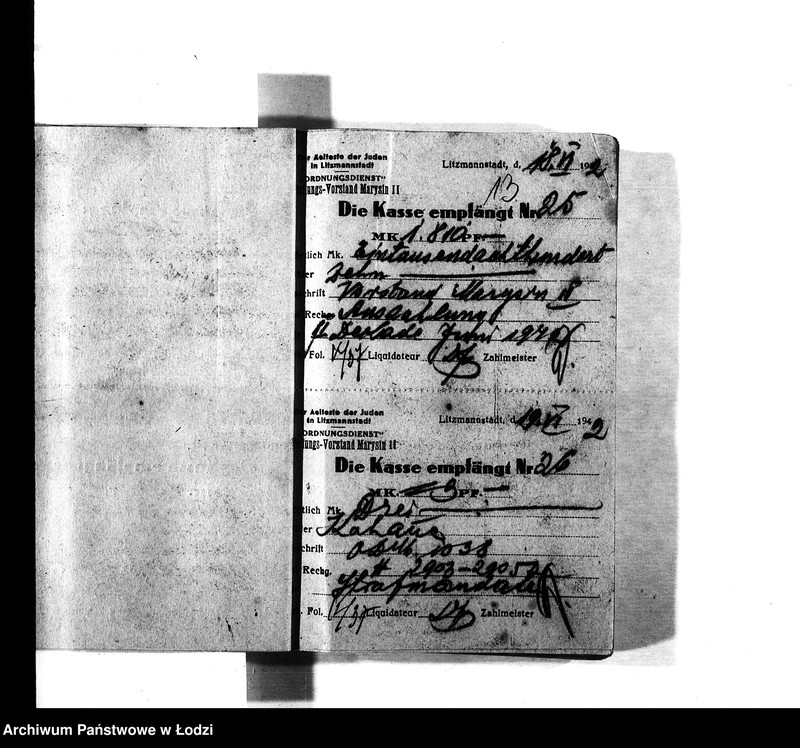 er Aelteste der Juden
in Litzmannstadt
ORDNUNGSDIENST"
ungs-Vorstand Marysin II
Litzmannstadt, d. 18.VI 1942
13.
Die Kasse empfängt Nr. 25
MK. 1.810 PF. —
tlich Mk. Eintausendachthundert
er zehn
schrift Vorstand Marysin II
Rechg. Auszahlung
II. Dekade Juni 1942
Fol. V/37 Liquidateur Zahlmeister
er Aelteste der Juden
in Litzmannstadt
ORDNUNGSDIENST"
ungs-Vorstand Marysin II
Litzmannstadt, d. 19.VI 1942
Die Kasse empfängt Nr. 26
MK. 3 PF. —
tlich Mk. Drei
er Kahana
schrift
Rechg. # 2903-2905
Strafmandate
Fol. V/37 Liquidateur Zahlmeister
Archiwum Państwowe w Łodzi